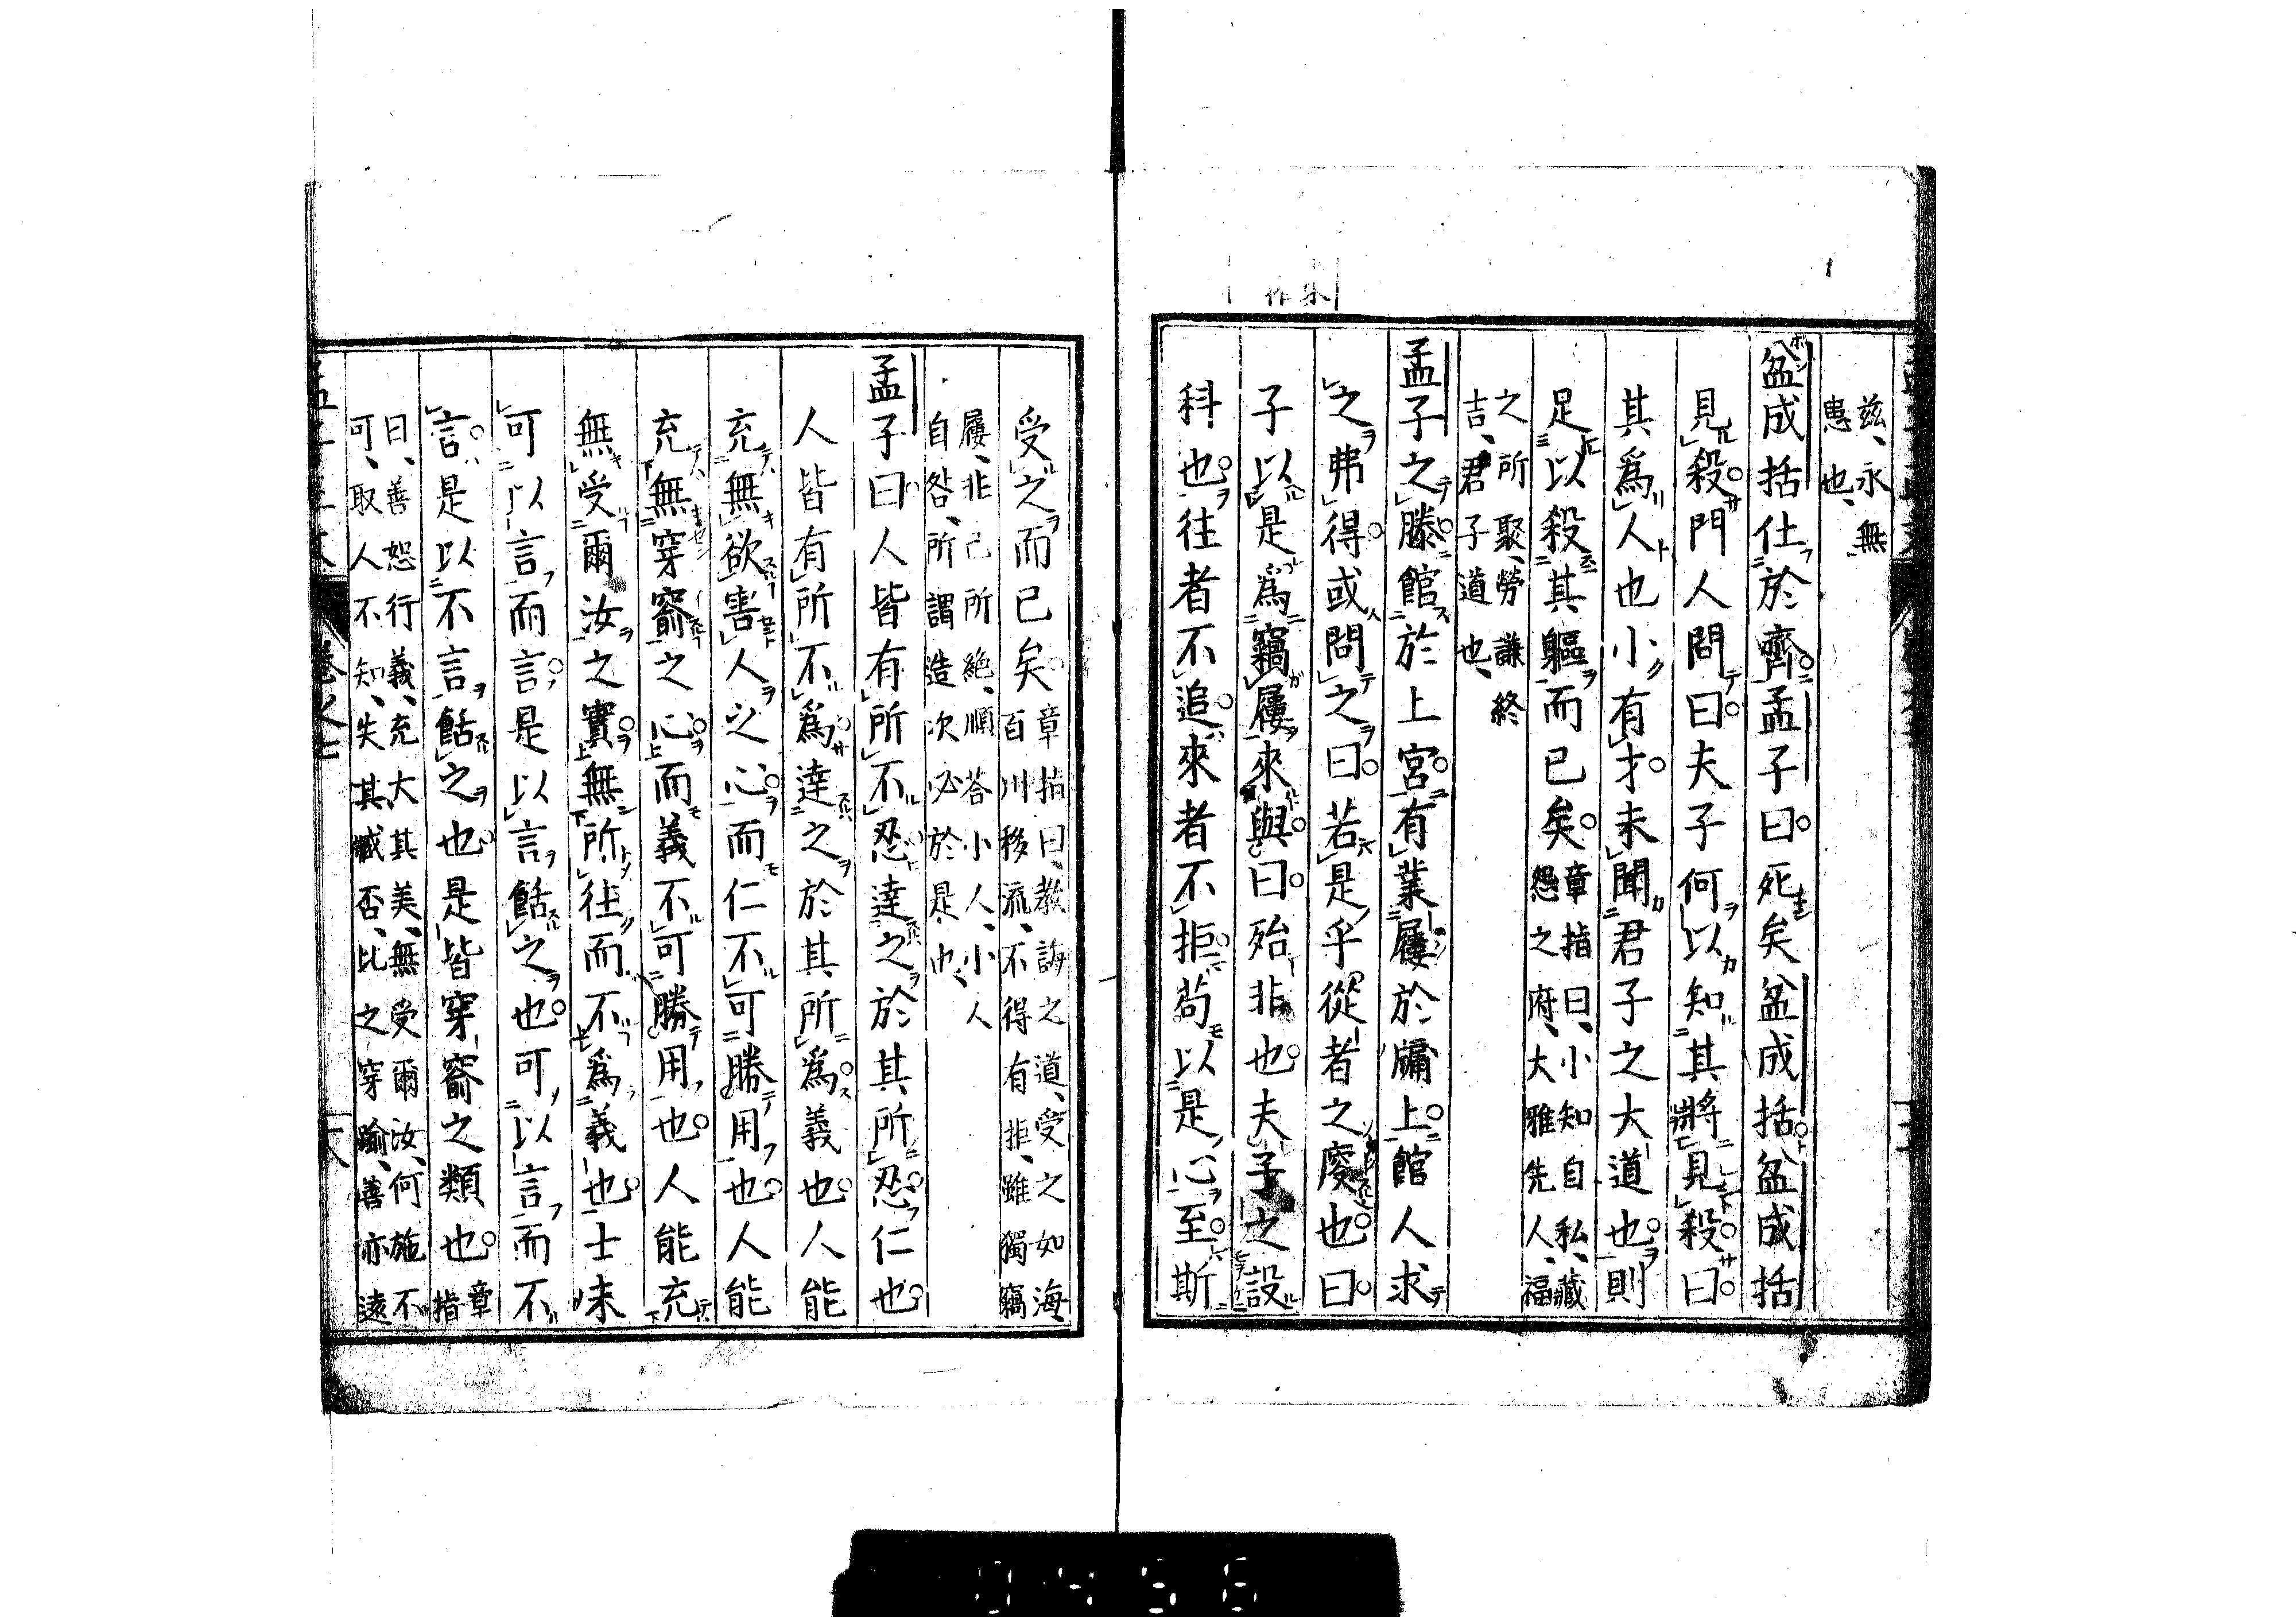 茲、永無
患也、
盆成括仕於齊孟子曰死矣盆成括盆成括
見殺門人問曰夫子何以知其將見殺曰
其爲人也小有才未聞君子之大道也則
足以殺其軀而已矣章指曰、小知自私、藏
怨之府、大雅先人、福
之所聚、勞謙終
吉、君子道也、
孟子之滕館於上宮有業屨於牖上館人求
之弗得或問之曰若是乎從者之廋也曰
子以是爲竊屨來與曰殆非也夫子之設
科也往者不追來者不拒苟以是心至斯
受之而已矣章指曰、教誨之道、受之如海、
百川移流、不得有拒、雖獨竊
屨、非己所絶、順荅小人、小人
自咎、所謂造次必於是也、
孟子曰人皆有所不忍達之於其所忍仁也
人皆有所不爲達之於其所爲義也人能
充無欲害人之心而仁不可勝用也人能
充無穿窬之心而義不可勝用也人能充
無受爾汝之實無所往而不爲義也士未
可以言而言是以言餂之也可以言而不
言是以不言餂之也是皆穿窬之類也章
指
曰、善恕行義、充大其美、無受爾汝、何施不
可、取人不知、失其臧否、比之穿踰、善亦遠